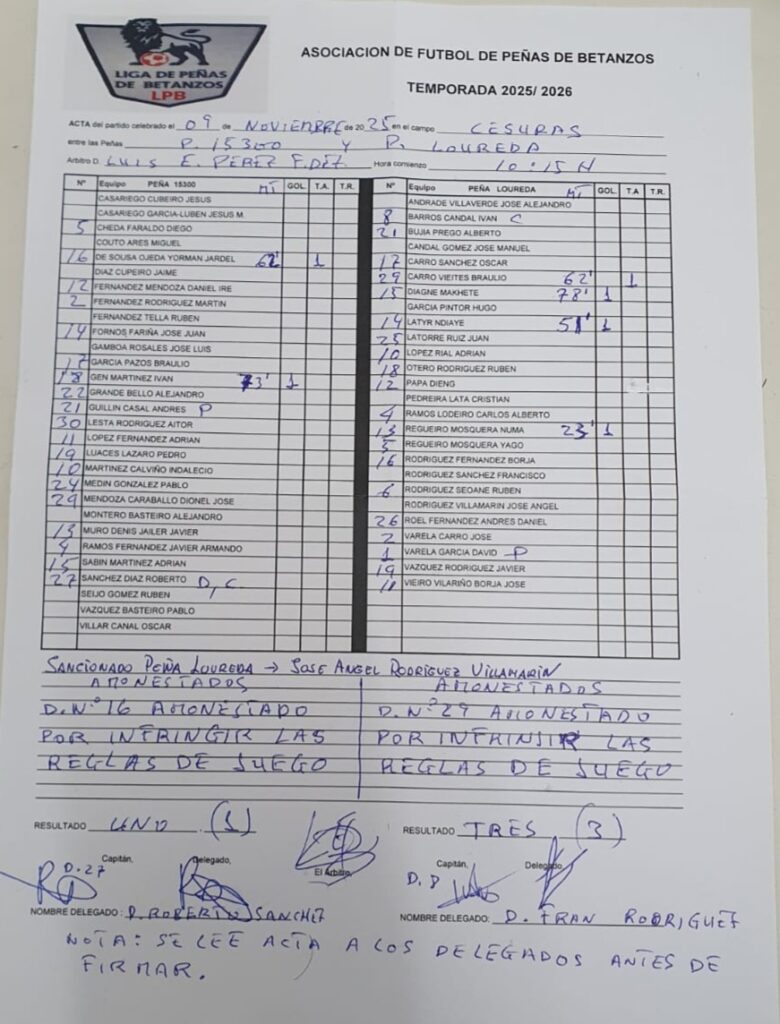 LIGA DE PEÑAS
DE BETANZOS
LPB
ASOCIACION DE FUTBOL DE PEÑAS DE BETANZOS
TEMPORADA 2025/ 2026
ACTA del partido celebrado el 09 de NOVIEMBRE de 2025 en el campo CESURAS
entre las Peñas P. 15300 Y P. LOUREDA
Arbitro D. LUIS E. PÉREZ F.DEZ. Hora comienzo 10:15 H
Nº Equipo PEÑA 15300 MI GOL. T.A. T.R.
CASARIEGO CUBEIRO JESUS
CASARIEGO GARCIA-LUBEN JESUS M.
5 CHEDA FARALDO DIEGO
COUTO ARES MIGUEL
16 DE SOUSA OJEDA YORMAN JARDEL 62' 1
DIAZ CUPEIRO JAIME
12 FERNANDEZ MENDOZA DANIEL IRE
2 FERNANDEZ RODRIGUEZ MARTIN
FERNANDEZ TELLA RUBEN
14 FORNOS FARIÑA JOSE JUAN
GAMBOA ROSALES JOSE LUIS
17 GARCIA PAZOS BRAULIO
18 GEN MARTINEZ IVAN 73' 1
22 GRANDE BELLO ALEJANDRO
21 GUILLIN CASAL ANDRES P
30 LESTA RODRIGUEZ AITOR
11 LOPEZ FERNANDEZ ADRIAN
19 LUACES LAZARO PEDRO
10 MARTINEZ CALVIÑO INDALECIO
24 MEDIN GONZALEZ PABLO
29 MENDOZA CARABALLO DIONEL JOSE
MONTERO BASTEIRO ALEJANDRO
13 MURO DENIS JAILER JAVIER
4 RAMOS FERNANDEZ JAVIER ARMANDO
15 SABIN MARTINEZ ADRIAN
27 SANCHEZ DIAZ ROBERTO D, C
SEIJO GOMEZ RUBEN
VAZQUEZ BASTEIRO PABLO
VILLAR CANAL OSCAR
Nº Equipo PEÑA LOUREDA MI GOL. T.A T.R.
ANDRADE VILLAVERDE JOSE ALEJANDRO
8 BARROS CANDAL IVAN C
21 BUJIA PREGO ALBERTO
CANDAL GOMEZ JOSE MANUEL
17 CARRO SANCHEZ OSCAR
29 CARRO VIEITES BRAULIO 62' 1
15 DIAGNE MAKHETE 78' 1
GARCIA PINTOR HUGO
14 LATYR NDIAYE 51' 1
25 LATORRE RUIZ JUAN
10 LOPEZ RIAL ADRIAN
18 OTERO RODRIGUEZ RUBEN
12 PAPA DIENG
PEDREIRA LATA CRISTIAN
4 RAMOS LODEIRO CARLOS ALBERTO
13 REGUEIRO MOSQUERA NUMA 23' 1
5 REGUEIRO MOSQUERA YAGO
16 RODRIGUEZ FERNANDEZ BORJA
RODRIGUEZ SANCHEZ FRANCISCO
6 RODRIGUEZ SEOANE RUBEN
RODRIGUEZ VILLAMARIN JOSE ANGEL
26 ROEL FERNANDEZ ANDRES DANIEL
2 VARELA CARRO JOSE
1 VARELA GARCIA DAVID P
19 VAZQUEZ RODRIGUEZ JAVIER
11 VIEIRO VILARIÑO BORJA JOSE
SANCIONADO PEÑA LOUREDA → JOSE ANGEL RODRIGUEZ VILLAMARIN
AMONESTADOS
D. Nº 16 AMONESTADO
POR INFRINGIR LAS
REGLAS DE JUEGO
AMONESTADOS
D. Nº 29 AMONESTADO
POR INFRINJIR LAS
REGLAS DE JUEGO
RESULTADO UNO (1)
RESULTADO TRES (3)
Capitán, Delegado, El Árbitro, Capitán, Delegado,
D. 27
D. 8
NOMBRE DELEGADO : D. ROBERTO SANCHEZ
NOMBRE DELEGADO: D. FRAN RODRIGUEZ
NOTA: SE LEE ACTA A LOS DELEGADOS ANTES DE
FIRMAR.